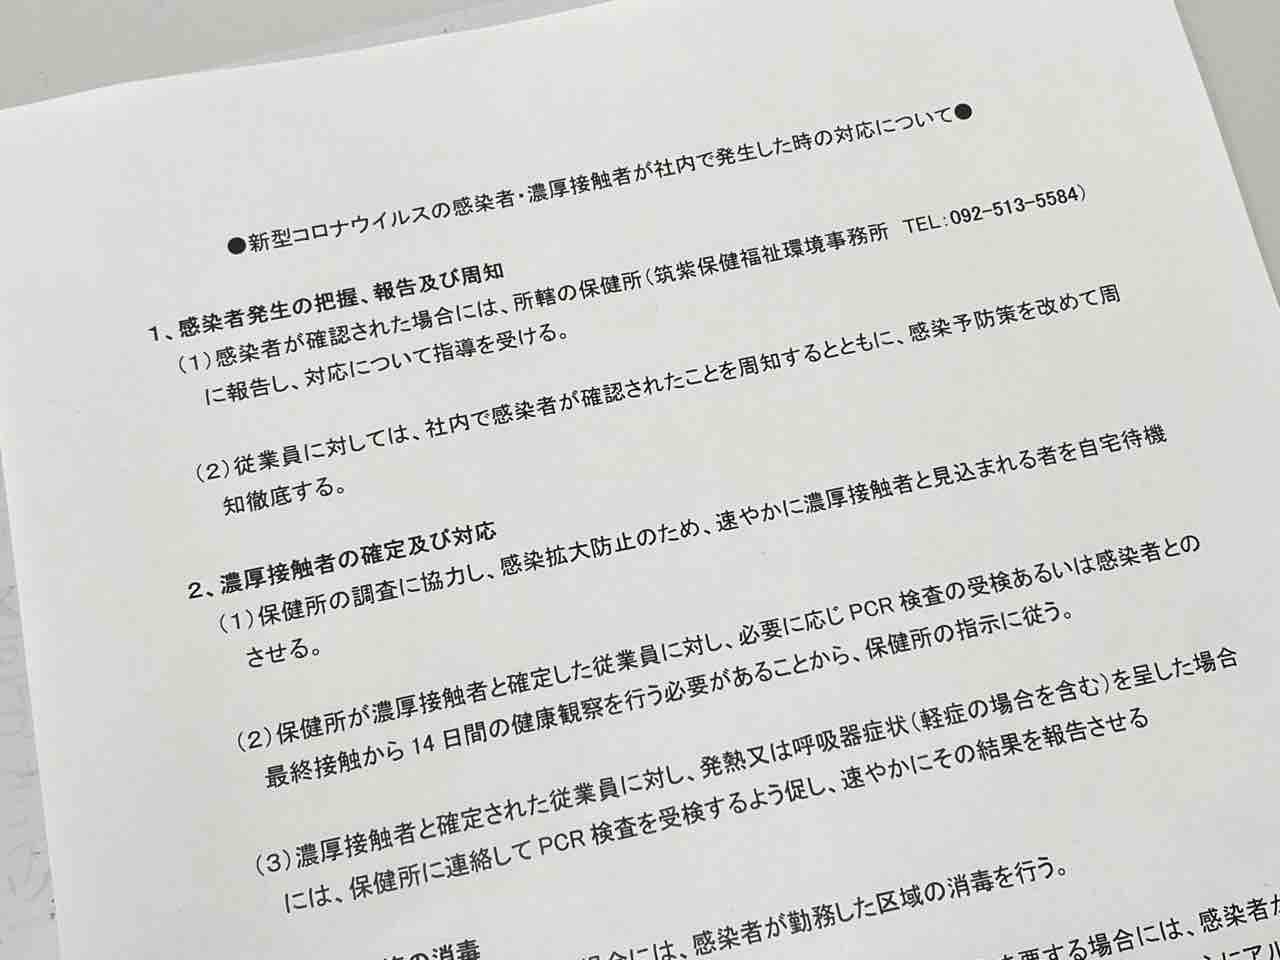 ●新型コロナウイルスの感染者・濃厚接触者が社内で発生した時の対応について●
1、感染者発生の把握、報告及び周知
(1)感染者が確認された場合には、所轄の保健所(筑紫保健福祉環境事務所 TEL:092-513-5584)
に報告し、対応について指導を受ける。
(2)従業員に対しては、社内で感染者が確認されたことを周知するとともに、感染予防策を改めて周
知徹底する。
2、濃厚接触者の確定及び対応
(1)保健所の調査に協力し、感染拡大防止のため、速やかに濃厚接触者と見込まれる者を自宅待機
させる。
(2)保健所が濃厚接触者と確定した従業員に対し、必要に応じPCR検査の受検あるいは感染者との
最終接触から14日間の健康観察を行う必要があることから、保健所の指示に従う。
(3)濃厚接触者と確定された従業員に対し、発熱又は呼吸器症状(軽症の場合を含む)を呈した場合
には、保健所に連絡してPCR検査を受検するよう促し、速やかにその結果を報告させる
の消毒
場合には、感染者が勤務した区域の消毒を行う。
を要する場合には、感染者が
にアル